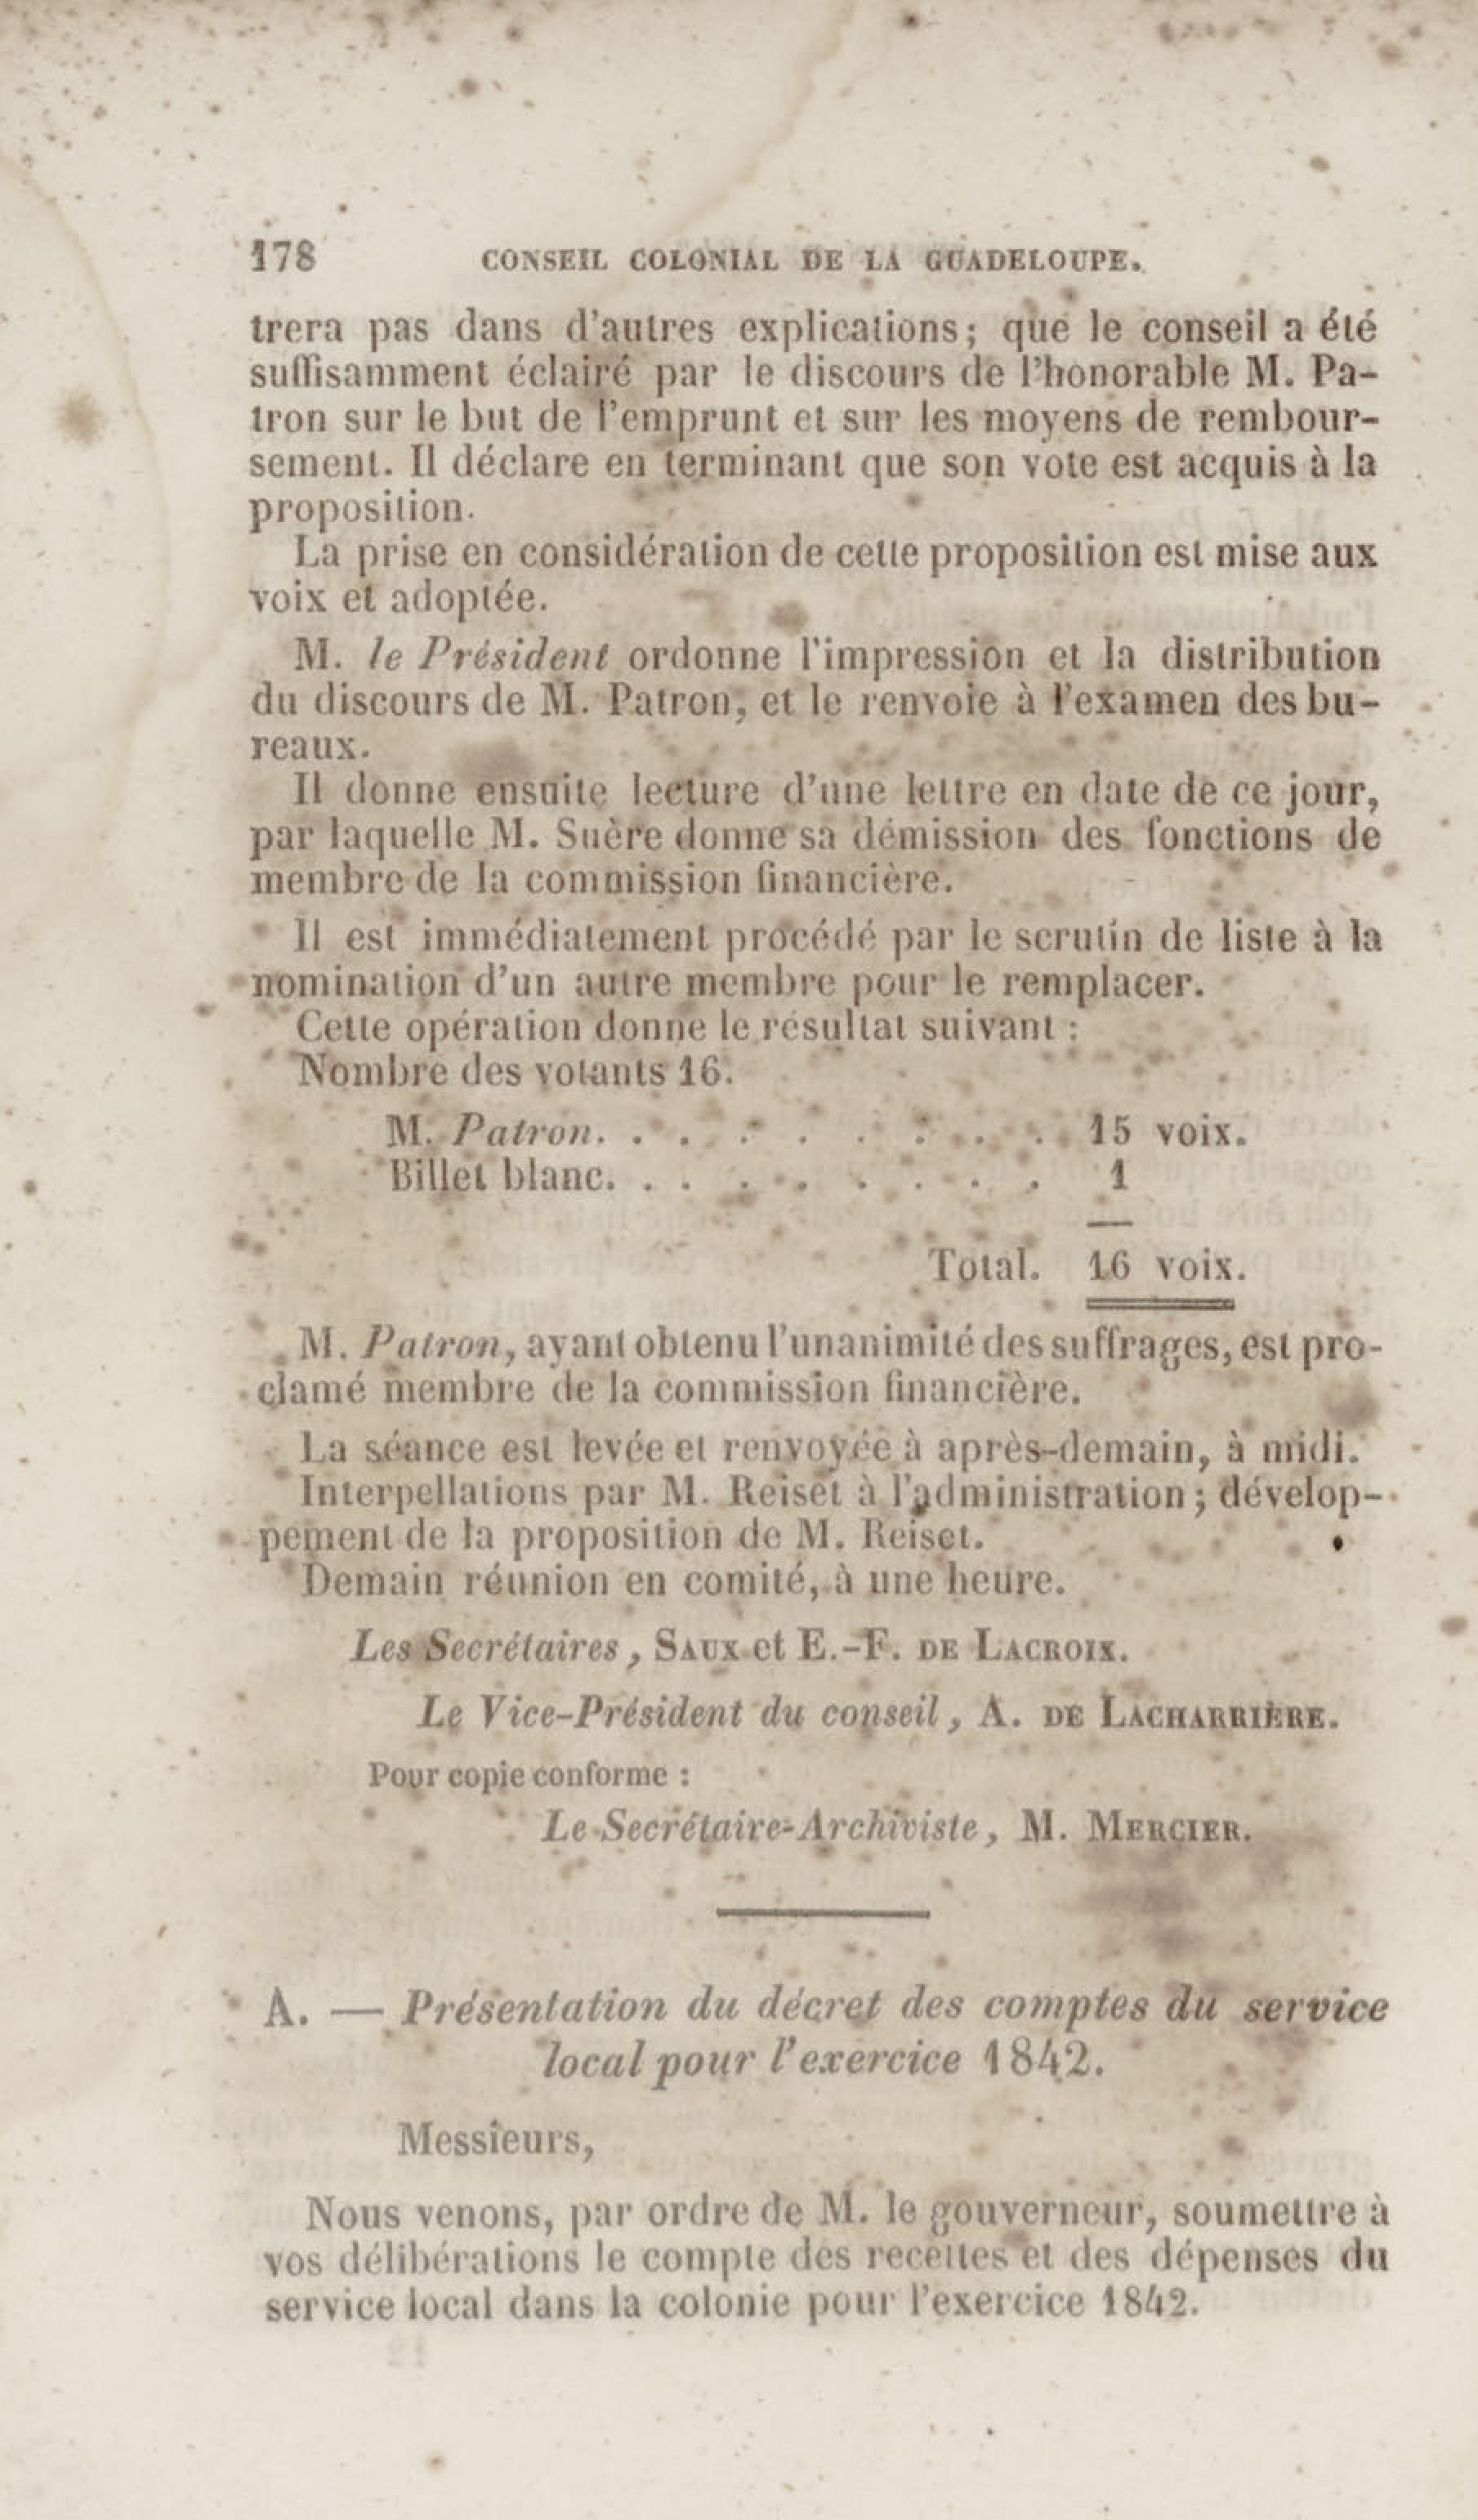 178 CONSEIL COLONIAL DE LA GUADELOUPE.
trera pas dans d'autres explications; que le conseil a été
suffisamment éclairé par le discours de l'honorable M. Pa-
tron sur le but de l'emprunt et sur les moyens de rembour-
sement. Il déclare en terminant que son vote est acquis à la
proposition.
La prise en considération de cette proposition est mise aux
voix et adoptée.
M. le Président ordonne l'impression et la distribution
du discours de M. Patron, et le renvoie à l'examen des bu-
reaux.
Il donne ensuite lecture d'une lettre en date de ce jour,
par laquelle M. Suère donne sa démission des fonctions de
membre de la commission financière.
Il est immédiatement procédé par le scrutin de liste à la
nomination d'un autre membre pour le remplacer.
Cette opération donne le résultat suivant :
Nombre des votants 16.
M. Patron. . . . . . . . . 15 voix.
Billet blanc. . . . . . . . . 1
Total. 16 voix.
M. Patron, ayant obtenu l'unanimité des suffrages, est pro-
clamé membre de la commission financière.
La séance est levée et renvoyée à après-demain, à midi.
Interpellations par M. Reiset à l'administration; dévelop-
pement de la proposition de M. Reiset.
Demain réunion en comité, à une heure.
Les Secrétaires, SAUX et E.-F. DE LACROIX.
Le Vice-Président du conseil, A. DE LACHARRIÈRE.
Pour copie conforme :
Le Secrétaire-Archiviste, M. MERCIER.
A. — Présentation du décret des comptes du service
local pour l'exercice 1842.
Messieurs,
Nous venons, par ordre de M. le gouverneur, soumettre à
vos délibérations le compte des recettes et des dépenses du
service local dans la colonie pour l'exercice 1842.